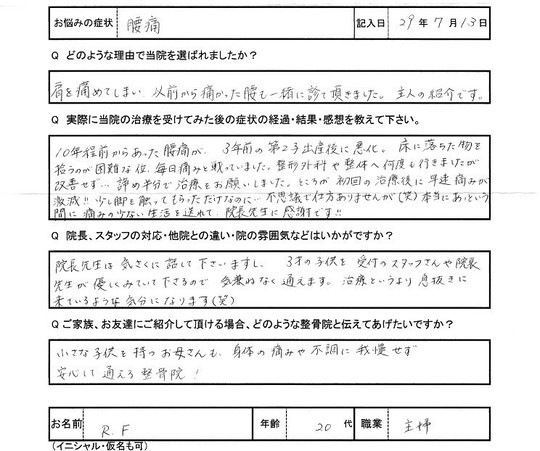 お悩みの症状 腰痛 記入日 29年7月13日
Q どのような理由で当院を選ばれましたか？
肩を痛めてしまい 以前から痛かった腰も一緒に診て頂きました。主人の紹介です。
Q 実際に当院の治療を受けてみた後の症状の経過・結果・感想を教えて下さい。
10年程前からあった腰痛が、3年前の第2子出産後に悪化。床に落ちた物を
拾うのが困難な位、毎日痛みと戦っていました。整形外科や整体へ何度も行きましたが
改善せず… 諦め半分で治療をお願いしました。ところが初回の治療後に早速痛みが
激減!! 少し脚を触ってもらっただけなのに… 不思議で仕方ありませんが(笑)本当にあっという
間に痛みの少ない生活を送れて、院長先生に感謝です!!
Q 院長、スタッフの対応・他院との違い・院の雰囲気などはいかがですか？
院長先生は気さくに話して下さいますし、3才の子供を受付のスタッフさんや院長
先生が優しくみていて下さるので 気兼ねなく通えます。治療というより息抜きに
来ているような気分になります(笑)
Q ご家族、お友達にご紹介して頂ける場合、どのような整骨院と伝えてあげたいですか？
小さな子供を持つお母さんも、身体の痛みや不調に我慢せず
安心して通える整骨院！
お名前 R.F 年齢 20代 職業 主婦
(イニシャル・仮名も可)